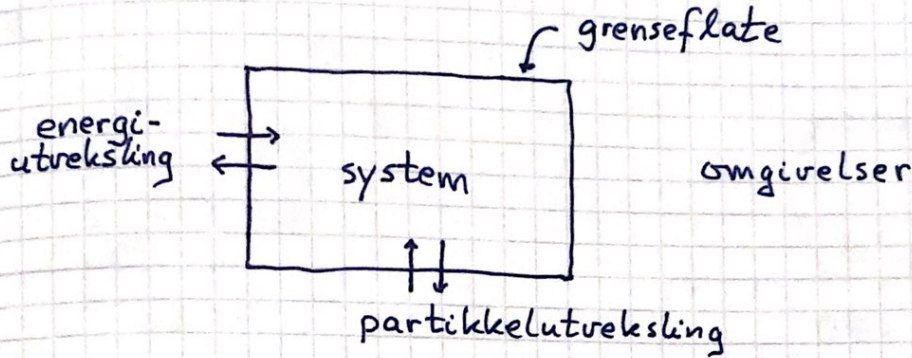 grenseflate
energi-
utveksling
system
omgivelser
partikkelutveksling